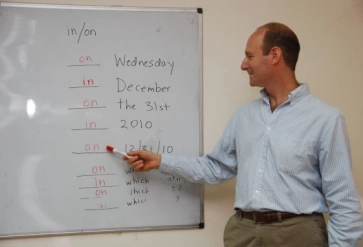 in/on
on Wednesday
in December
on the 31st
in 2010
on 12/31/10
on
in which
on which
in which ?